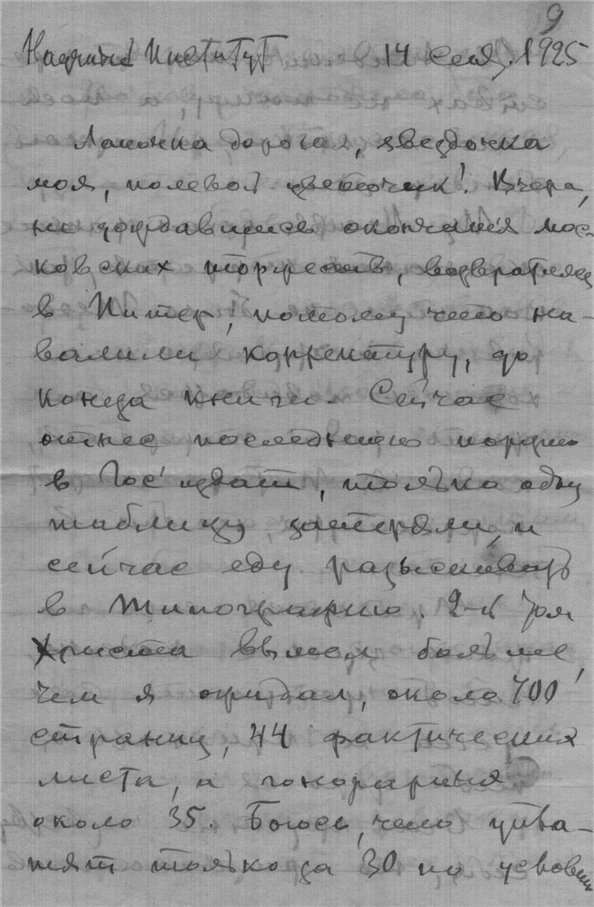 9
Научный Институт 14 сент. 1925
Лапочка дорогая, звездочка
моя, полевой цветочек! Вчера,
не дождавшись окончания мос-
ковских торжеств, возвратился
в Питер, потому что на-
валили корректуру, до
конца книги. Сейчас
отнес последнюю порцию
в Госиздат, только одну
таблицу затеряли, и
сейчас еду разыскивать
в типографию. 2-й том
Христа вышел больше,
чем я ожидал, около 700
страниц, 44 фактических
листа, а гонорарных
около 35. Боюсь, что упла-
тят только за 30 по условию